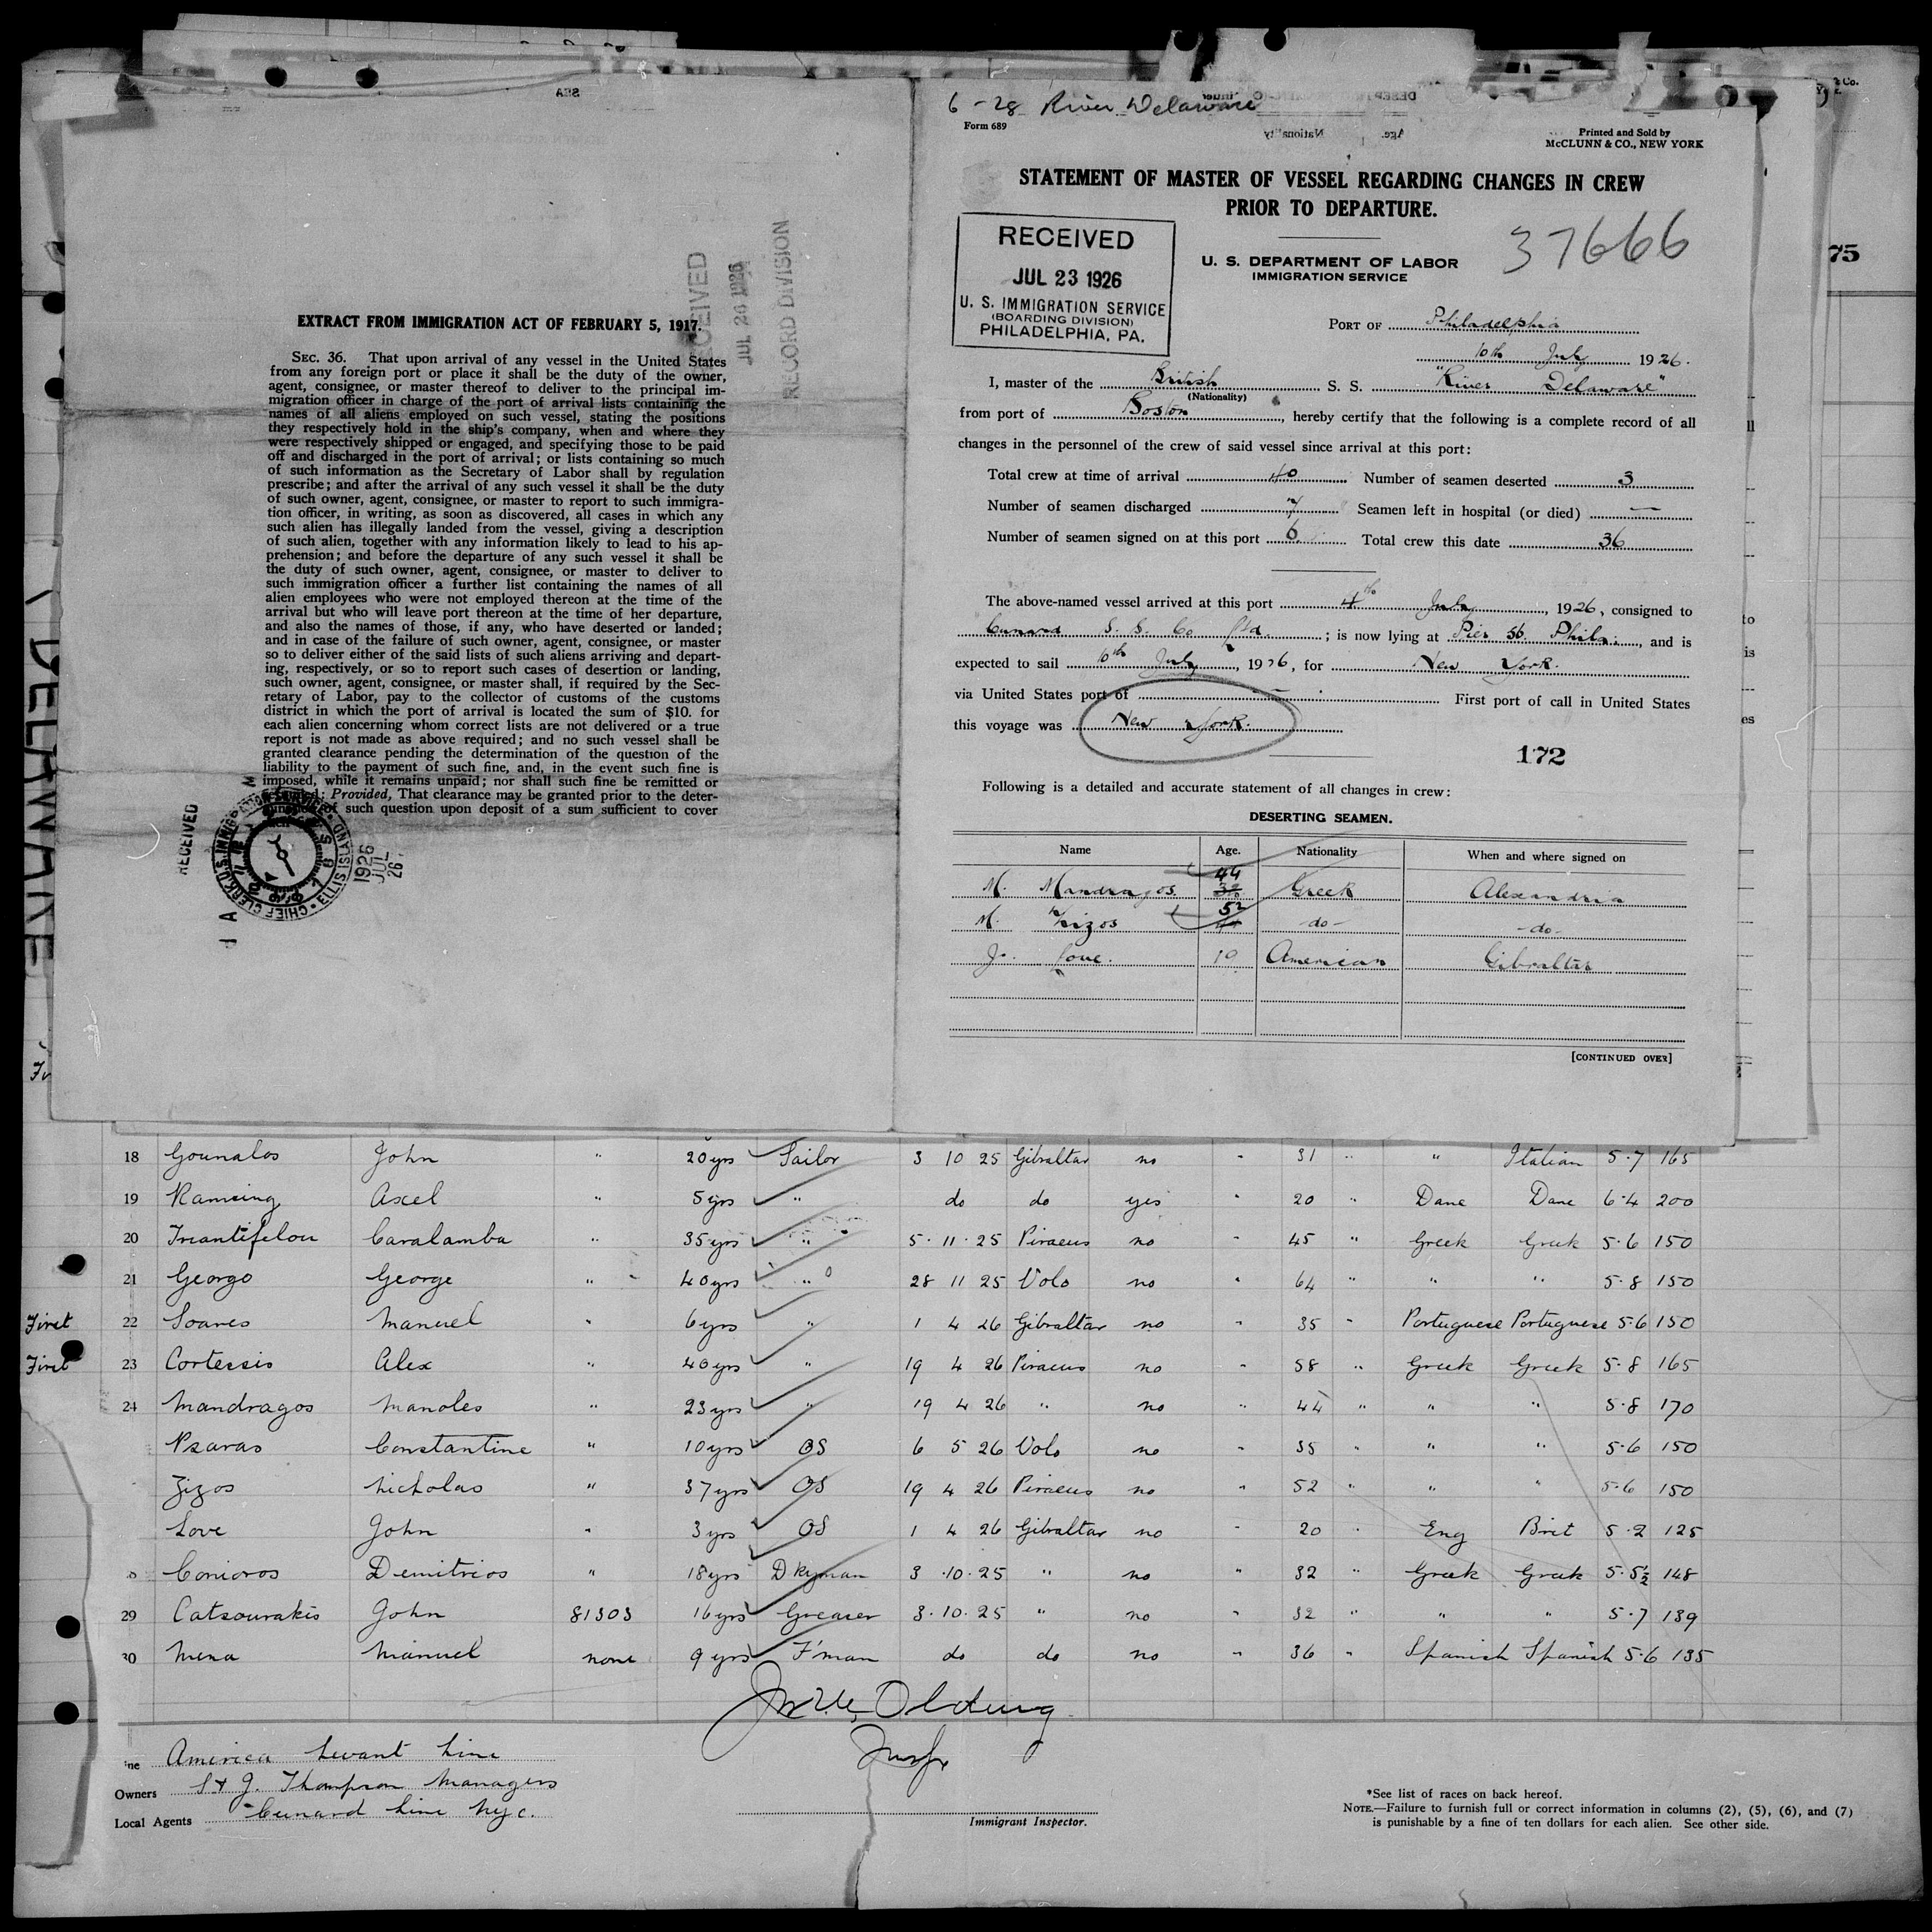 EXTRACT FROM IMMIGRATION ACT OF FEBRUARY 5, 1917.
SEC. 36. That upon arrival of any vessel in the United States
from any foreign port or place it shall be the duty of the owner,
agent, consignee, or master thereof to deliver to the principal im-
migration officer in charge of the port of arrival lists containing the
names of all aliens employed on such vessel, stating the positions
they respectively hold in the ship's company, when and where they
were respectively shipped or engaged, and specifying those to be paid
off and discharged in the port of arrival; or lists containing so much
of such information as the Secretary of Labor shall by regulation
prescribe; and after the arrival of any such vessel it shall be the duty
of such owner, agent, consignee, or master to report to such immigra-
tion officer, in writing, as soon as discovered, all cases in which any
such alien has illegally landed from the vessel, giving a description
of such alien, together with any information likely to lead to his ap-
prehension; and before the departure of any such vessel it shall be
the duty of such owner, agent, consignee, or master to deliver to
such immigration officer a further list containing the names of all
alien employees who were not employed thereon at the time of the
arrival but who will leave port thereon at the time of her departure,
and also the names of those, if any, who have deserted or landed;
and in case of the failure of such owner, agent, consignee, or master
so to deliver either of the said lists of such aliens arriving and depart-
ing, respectively, or so to report such cases of desertion or landing,
such owner, agent, consignee, or master shall, if required by the Sec-
retary of Labor, pay to the collector of customs of the customs
district in which the port of arrival is located the sum of $10. for
each alien concerning whom correct lists are not delivered or a true
report is not made as above required; and no such vessel shall be
granted clearance pending the determination of the question of the
liability to the payment of such fine, and, in the event such fine is
imposed, while it remains unpaid; nor shall such fine be remitted or
Provided, That clearance may be granted prior to the deter-
such question upon deposit of a sum sufficient to cover
RECEIVED
JUL 26 1926
RECORD DIVISION
RECEIVED
CHIEF CLERK U.S. IMMIGRATION SERVICE ELLIS ISLAND
1926
JUL
26
DELAWARE
6-28 River Delaware
Form 689
Printed and Sold by
McCLUNN & CO., NEW YORK
STATEMENT OF MASTER OF VESSEL REGARDING CHANGES IN CREW
PRIOR TO DEPARTURE.
RECEIVED
JUL 23 1926
U. S. IMMIGRATION SERVICE
(BOARDING DIVISION)
PHILADELPHIA, PA.
U. S. DEPARTMENT OF LABOR
IMMIGRATION SERVICE
37666
75
PORT OF Philadelphia
10th July 1926.
I, master of the British S. S. "River Delaware"
(Nationality)
from port of Boston, hereby certify that the following is a complete record of all
changes in the personnel of the crew of said vessel since arrival at this port:
Total crew at time of arrival 40 Number of seamen deserted 3
Number of seamen discharged 7 Seamen left in hospital (or died) —
Number of seamen signed on at this port 6 Total crew this date 36
The above-named vessel arrived at this port 4th July, 1926, consigned to
Cunard S. S. Co Ltd.; is now lying at Pier 56. Phila., and is
expected to sail 10th July, 1926, for New York.
via United States port of — First port of call in United States
this voyage was New York.
172
Following is a detailed and accurate statement of all changes in crew:
DESERTING SEAMEN.
Name Age. Nationality When and where signed on
M. Mandragos. 44 Greek Alexandria
M. Zizos 52 -do- -do-
J. Love. 19 American Gibraltar
[CONTINUED OVER]
18 Gounalos John " 20 yrs Sailor 3 10 25 Gibraltar no " 31 " " Italian 5·7 165
19 Ramsing Axel " 5 yrs " do do yes " 20 " Dane Dane 6·4 200
20 Triantifelou Caralamba " 35 yrs " 5·11·25 Piraeus no " 45 " Greek Greek 5·6 150
21 Georgo George " 40 yrs " 28 11 25 Volo no " 64 " " " 5·8 150
First 22 Soares Manuel " 6 yrs " 1 4 26 Gibraltar no " 35 " Portuguese Portuguese 5·6 150
First 23 Cortessis Alex " 40 yrs " 19 4 26 Piraeus no " 58 " Greek Greek 5·8 165
24 Mandragos Manoles " 23 yrs " 19 4 26 " no " 44 " " " 5·8 170
Psaras Constantine " 10 yrs OS 6 5 26 Volo no " 35 " " " 5·6 150
Zizos Nicholas " 37 yrs OS 19 4 26 Piraeus no " 52 " " " 5·6 150
Love John " 3 yrs OS 1 4 26 Gibraltar no " 20 " Eng Brit 5·2 125
Conioros Demitrios " 18 yrs Dkyman 3·10·25 " no " 32 " Greek Greek 5·5½ 148
29 Catsourakis John 81303 16 yrs Greaser 3·10·25 " no " 32 " " " 5·7 139
30 Mena Manuel none 9 yrs F'man do do no " 36 " Spanish Spanish 5·6 135
Olding
Insp
America Levant Line
Owners S & J. Thompson Managers
Local Agents Cunard Line N.Y.C.
Immigrant Inspector.
*See list of races on back hereof.
NOTE.—Failure to furnish full or correct information in columns (2), (5), (6), and (7)
is punishable by a fine of ten dollars for each alien. See other side.